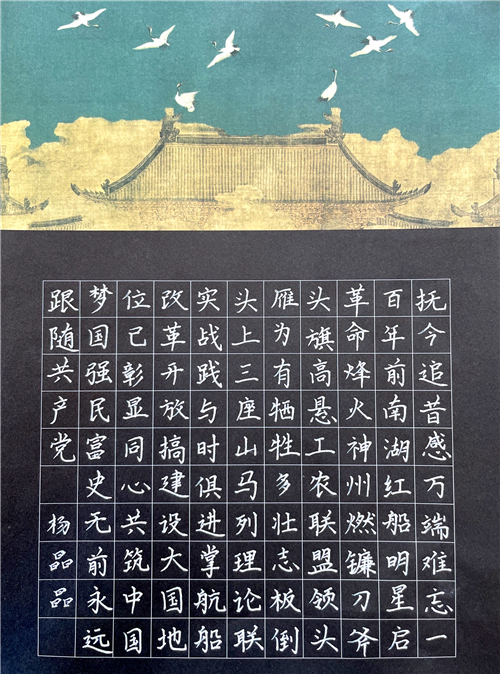 抚今追昔感万端难忘一
百年前南湖红船明星启
革命烽火神州燃镰刀斧
头旗高悬工农联盟领头
雁为有牺牲多壮志板倒
头上三座山马列理论联
实战践与时俱进掌航船
改革开放搞建设大国地
位已彰显同心共筑中国
梦国强民富史无前永远
跟随共产党 杨晶晶